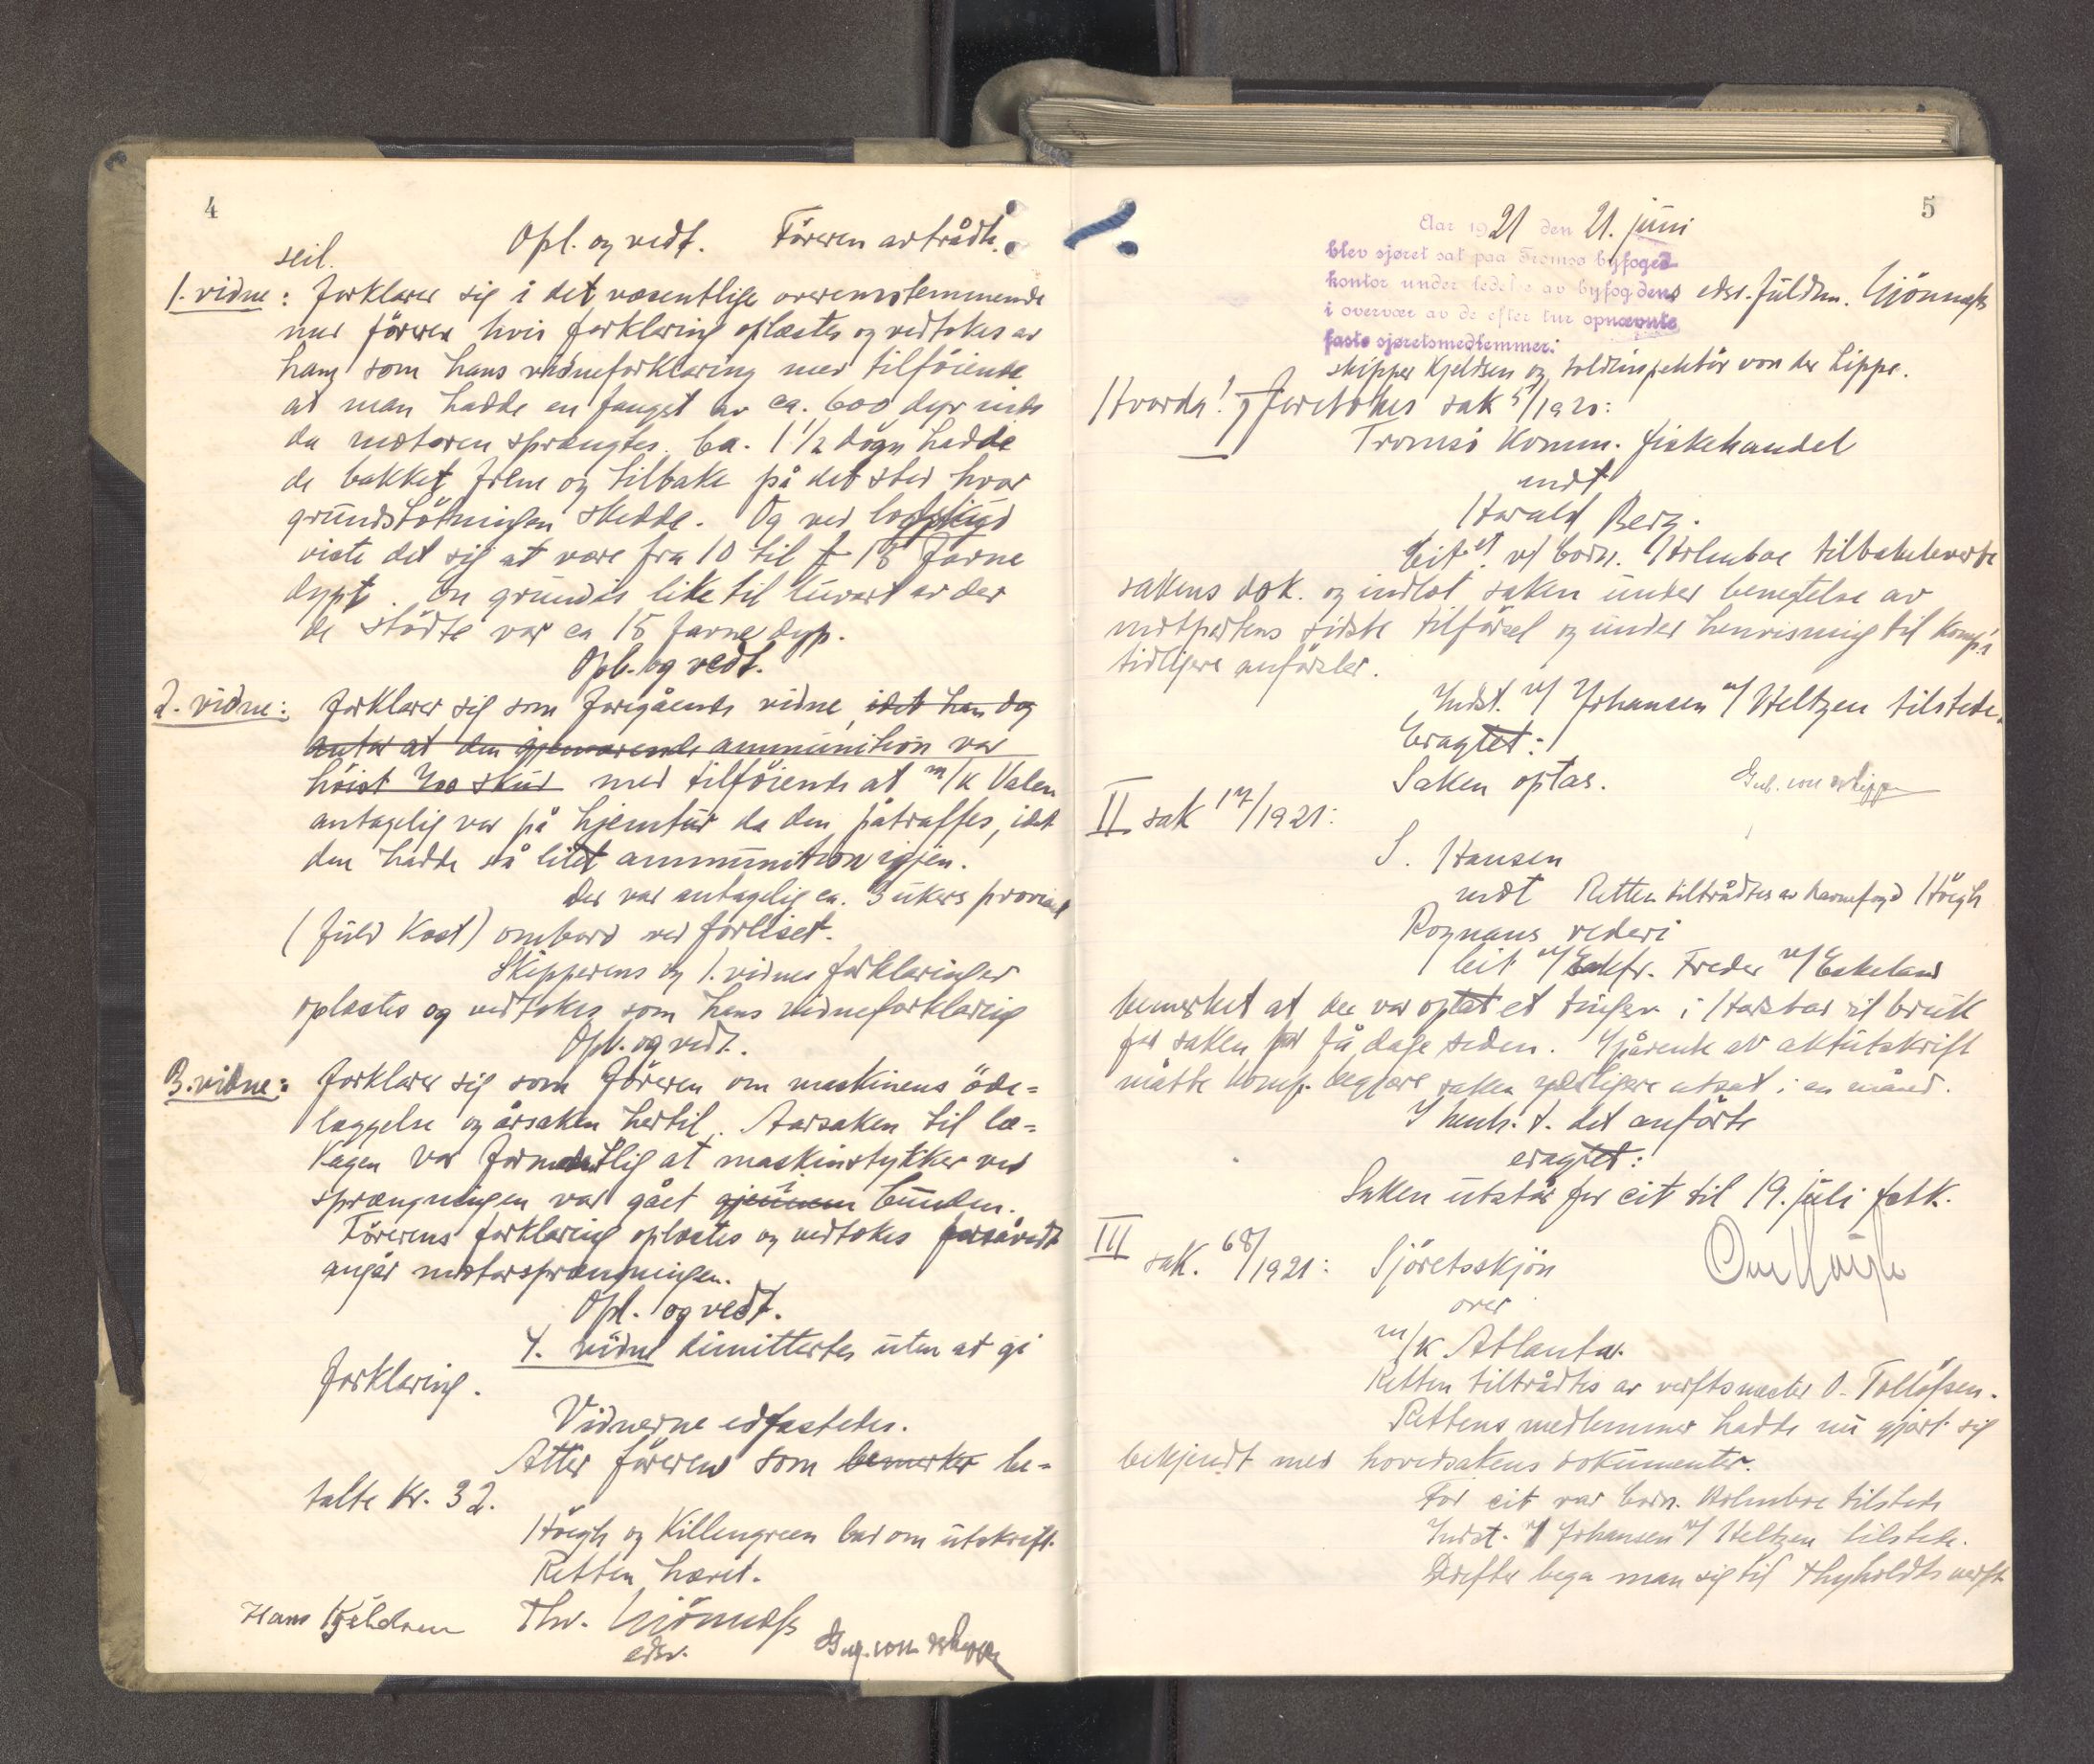 4
seil.
Opl. og vedt. Föreren avtrådte.
1. vidne: forklarer sig i det væsentlige overensstemmende
med föreren hvis forklaring oplæstes og vedtokes av
ham som hans vidneforklaring med tilföiende
at man hadde en fangst av ca. 600 dyr inde
da motoren sprængtes. Ca. 1 1/2 dögn hadde
de bakket frem og tilbake på det sted hvor
grundstötningen skedde. Og ved lodskud
viste det sig at være fra 10 til 18 favne
dypt. En grundis like til luvart av der
de stödte var ca 15 favne dyp.
Opl. og vedt.
2. vidne: forklarer sig som foregående vidne, idet han dog
antar at den gjenværende ammunition var
höist 400 skud med tilföiende at m/k Valen
antagelig var på hjemtur da den påtraffes, idet
den hadde så litet ammunition igjen.
Der var antagelig ca. 3 ukers proviant
(fuld kost) ombord ved forliset.
Skipperens og 1. vidnes forklaringer
oplæstes og vedtokes som hans vidneforklaring
Opl. og vedt.
3. vidne: forklarer sig som föreren om maskinens öde-
læggelse og årsaken hertil. Aarsaken til læ-
kagen var formentlig at maskinstykker ved
sprængningen var gået gjennem bunden.
Förerens forklaring oplæstes og vedtokes forsåvidt
angår motorsprængningen.
Opl. og vedt.
4. vidne dimittertes uten at gi
forklaring.
Vidnerne edfæstedes.
Atter föreren som bemerker be-
talte kr. 32.
Höegh og Killengreen bad om utskrift.
Retten hævet.
Hans Kjeldsen Thv. Gjönnæss
edsv.
5
Aar 1921 den 21. juni
blev sjøret sat paa Tromsø byfoged-
kontor under ledelse av byfogdens edsv. fuldm. Gjönnæss
i overvær av de efter tur opnævnte
faste sjøretsmedlemmer:
skipper Kjeldsen og toldinspektör von der Lippe.
Hvorda! I Foretokes sak 5/1920:
Tromsö Komm. fiskehandel
mot
Harald Berg.
Cit.et v/ Cand. Holmboe tilbakeleverte
sakens dok. og indlot saken under benegtelse av
motpartens sidste tilförsel og under henvisning til komp.s
tidligere anförsler.
Indst. v/ Johansen v/ Heltzen tilstede.
Eragtet:
Saken optas.
II sak 17/1921:
S. Hansen
mot Retten tiltrådtes av havnefogd Höegh
Rognans rederi
Cit v/ Freder v/ Eskeland
bemerket at der var optat et tingsv. i Harstad til bruk
for saken for få dage siden. I påvente av aktutskrift
måtte komp. begjære saken yderligere utsat i en måned.
I henh. t. det anförte
eragtet:
Saken utstår for cit til 19. juli fstk.
III sak. 68/1921: Sjöretsskjön
over
m/k Atlanta.
Retten tiltrådtes av verftsmester O. Tollefsen.
Rettens medlemmer hadde nu gjort sig
bekjendt med hovedsakens dokumenter.
For cit var Cand. Holmboe tilstede
Indst. v/ Johansen v/ Heltzen tilstede.
Derefter bega man sig til Thyholdts verft